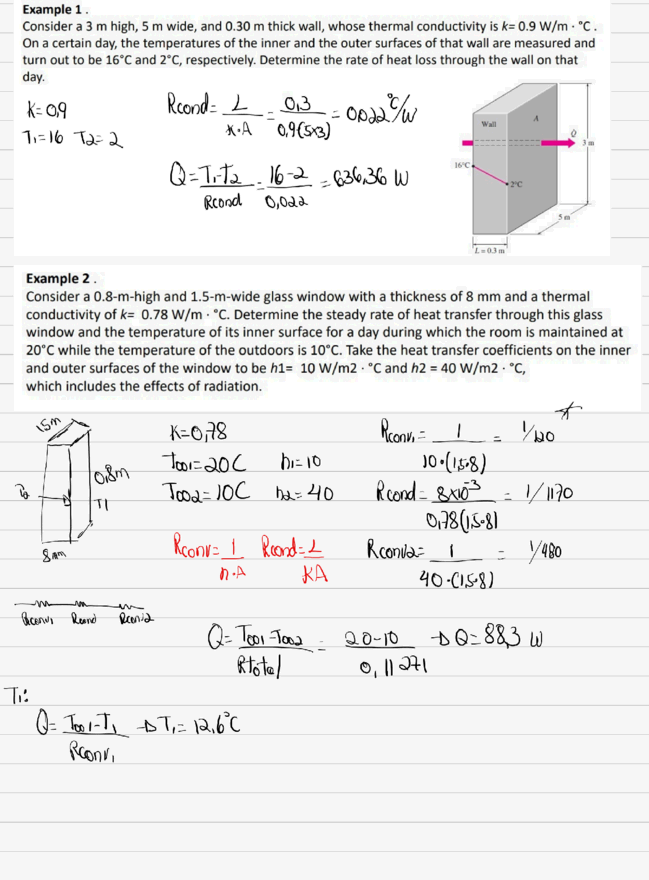 Example 1 .
Consider a 3 m high, 5 m wide, and 0.30 m thick wall, whose thermal conductivity is k= 0.9 W/m · °C .
On a certain day, the temperatures of the inner and the outer surfaces of that wall are measured and
turn out to be 16°C and 2°C, respectively. Determine the rate of heat loss through the wall on that
day.
K=0,9
T1=16 T2=2
Rcond= L / K·A = 0,3 / 0,9(5x3) = 0,022 °C/W
Q= T1-T2 / Rcond = 16-2 / 0,022 = 636,36 W
Wall
A
Q̇
3 m
16°C
2°C
5 m
L = 0.3 m
Example 2 .
Consider a 0.8-m-high and 1.5-m-wide glass window with a thickness of 8 mm and a thermal
conductivity of k= 0.78 W/m · °C. Determine the steady rate of heat transfer through this glass
window and the temperature of its inner surface for a day during which the room is maintained at
20°C while the temperature of the outdoors is 10°C. Take the heat transfer coefficients on the inner
and outer surfaces of the window to be h1= 10 W/m2 · °C and h2 = 40 W/m2 · °C,
which includes the effects of radiation.
1,5m
0,8m
T1
8mm
K=0,78
T∞1=20C h1=10
T∞2=10C h2=40
Rconv= 1 / h·A Rcond= L / KA
Rconv1= 1 / 10·(1,5·8) = 1/120
Rcond= 8x10-3 / 0,78(1,5·8) = 1/1170
Rconv2= 1 / 40·(1,5·8) = 1/480
Rconv1 Rcond Rconv2
Q= T∞1-T∞2 / Rtotal = 20-10 / 0,11271 → Q=88,3 W
T1:
Q= T∞1-T1 / Rconv1 → T1= 12,6°C